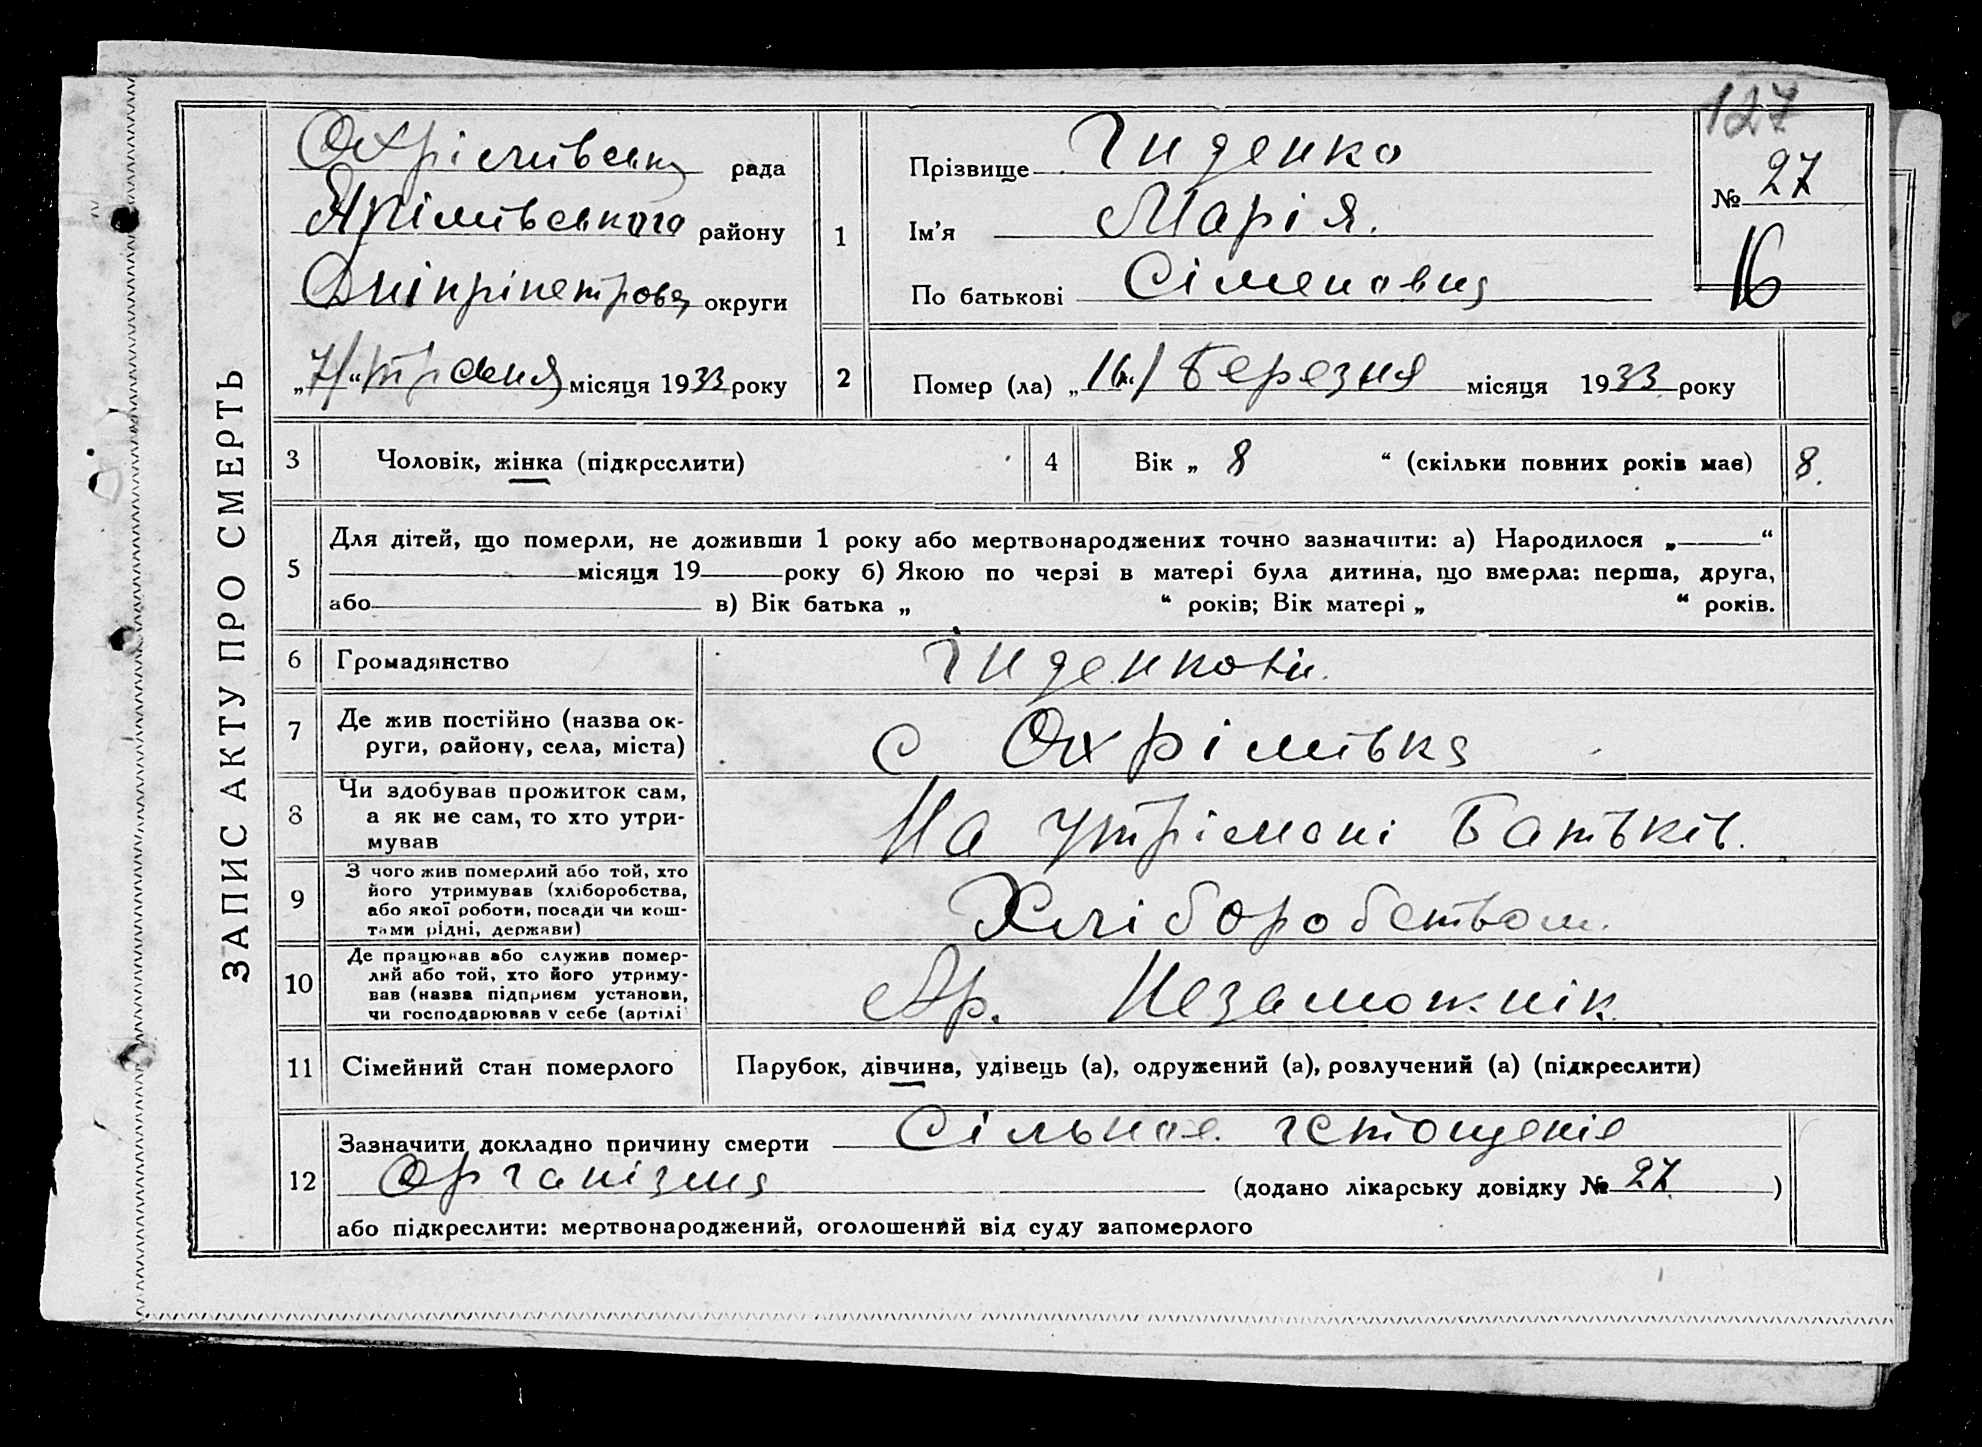 127
ЗАПИС АКТУ ПРО СМЕРТЬ
Охрімівська рада
Якімівського району
Дніпріпетровs округи
„7/“ травня місяця 1933 року
1
Прізвище Гиденко
Ім'я Марія.
По батькові Сіменовна
№ 27
16
2
Помер (ла) „16/“ Березня місяця 1933 року
3 Чоловік, жінка (підкреслити)
4 Вік „ 8 “ (скільки повних років мав) 8.
5
Для дітей, що померли, не доживши 1 року або мертвонароджених точно зазначити: а) Народилося „——“
місяця 19 року б) Якою по черзі в матері була дитина, що вмерла: перша, друга,
або в) Вік батька „ “ років; Вік матері „ “ років.
6 Громадянство
7 Де жив постійно (назва ок-
руги, району, села, міста)
с Охрімівка
8 Чи здобував прожиток сам,
а як не сам, то хто утри-
мував
На утрімані Батьків.
9 З чого жив померлий або той, хто
його утримував (хліборобства,
або якої роботи, посади чи кош-
тами рідні, держави)
Хліборобством.
10 Де працював або служив помер-
лий або той, хто його утриму-
вав (назва підприєм установи,
чи господарював у себе (артілі
Ар. Незаможнік
11 Сімейний стан померлого
Парубок, дівчина, удівець (а), одружений (а), розлучений (а) (підкреслити)
12
Зазначити докладно причину смерти Сільное істощеніе
Організма (додано лікарську довідку № 27 )
або підкреслити: мертвонароджений, оголошений від суду запомерлого